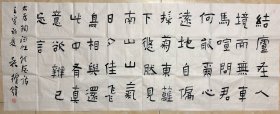 結廬在人
境而無車
馬喧問君
何能爾心
遠地自偏
采菊東籬
下悠然見
南山山氣
日夕佳飛
鳥相與還
此還有真
意欲辨已
忘言